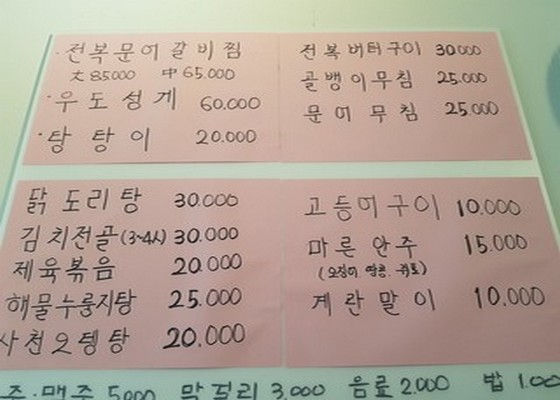 · 전복문어갈비찜
大 85000 中 65.000
· 우도성게 60.000
· 탕탕이 20.000
전복버터구이 30000
골뱅이무침 25.000
문어무침 25.000
닭도리탕 30.000
김치전골(3~4人) 30.000
제육볶음 20.000
해물누룽지탕 25.000
사천오뎅탕 20.000
고등어구이 10.000
마른안주 15.000
(오징어 땅콩 쥐포)
계란말이 10.000
주·맥주 5.000 막걸리 3.000 음료 2.000 밥 1.000